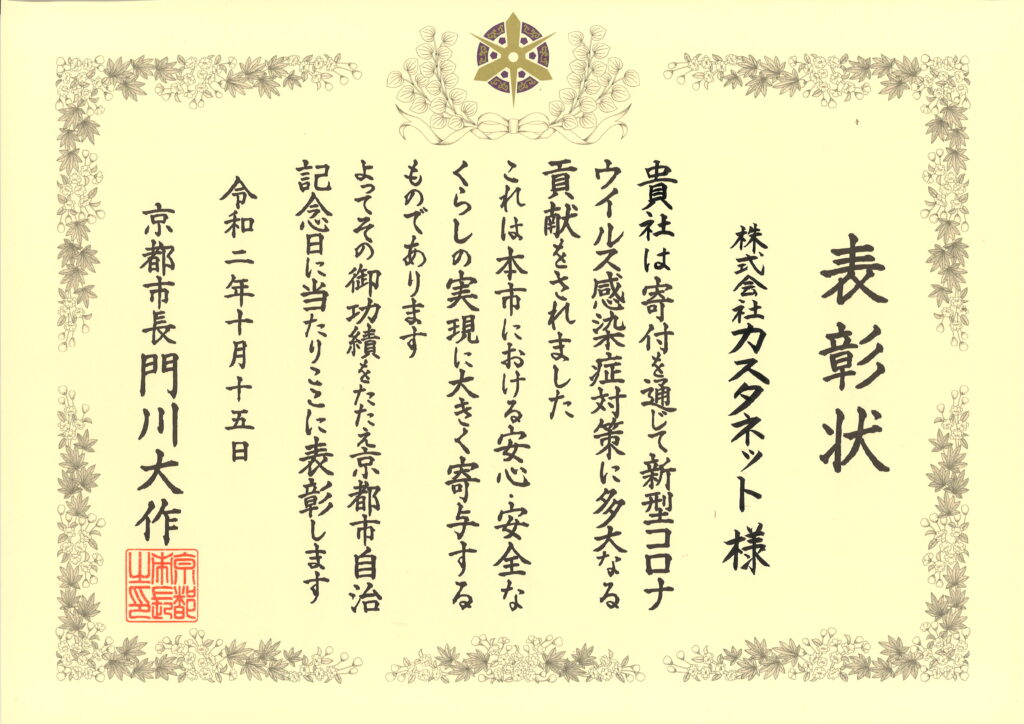 表彰状
株式会社カスタネット 様
貴社は寄付を通じて新型コロナ
ウイルス感染症対策に多大なる
貢献をされました
これは本市における安心・安全な
くらしの実現に大きく寄与する
ものであります
よってその御功績をたたえ京都市自治
記念日に当たりここに表彰します
令和二年十月十五日
京都市長 門川大作
京都市長之印